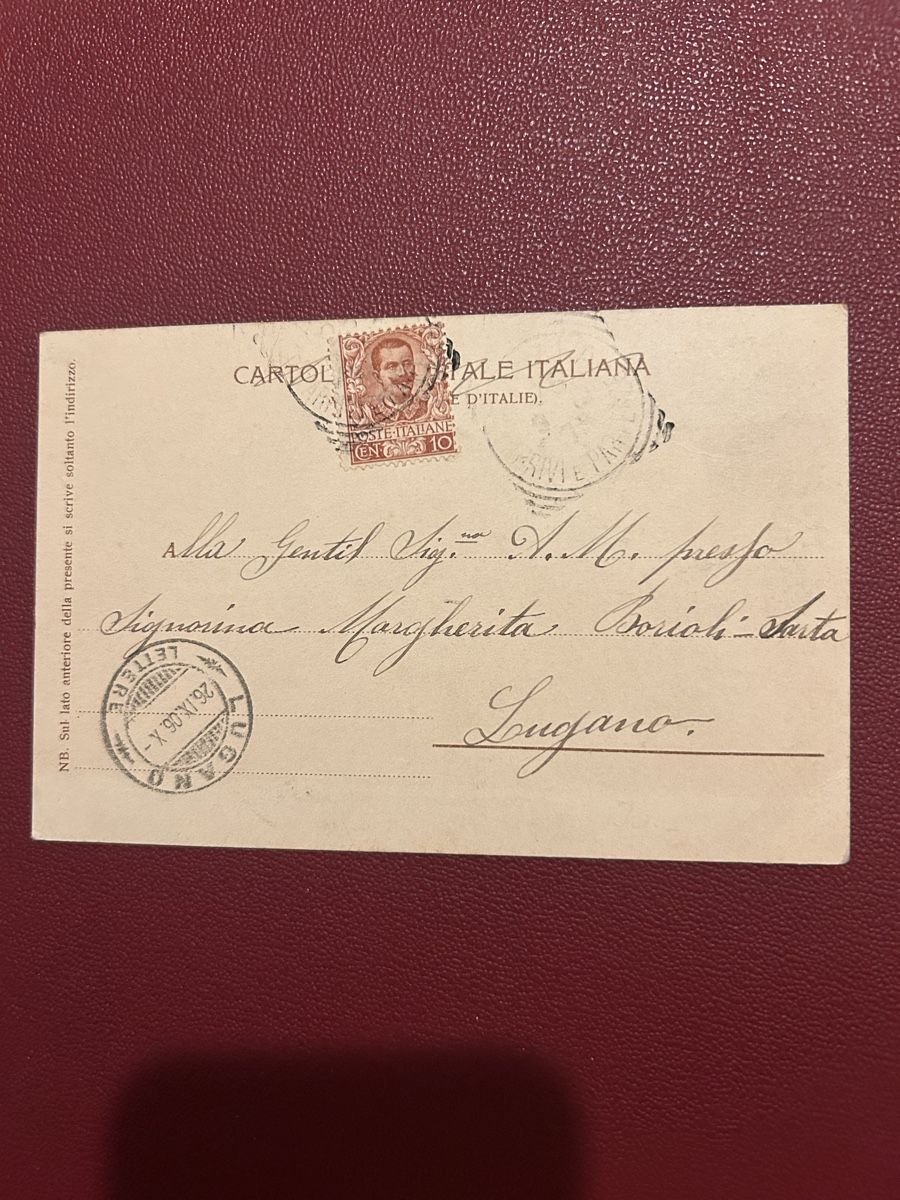 CARTOL TALE ITALIANA
E D'ITALIE).
POSTE·ITALIANE
CEN 10
RIVI E PAR
Alla Gentil Sig.na A. M. presso
Signorina Margherita Borioli - Sarta
Lugano.
LUGANO
LETTERE
26.IX.06.X-
NB. Sul lato anteriore della presente si scrive soltanto l'indirizzo.